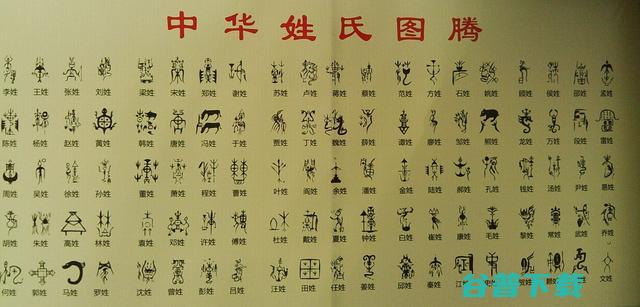 中华姓氏图腾
李姓 王姓 张姓 刘姓 梁姓 宋姓 郑姓 谢姓 苏姓 卢姓 蒋姓 蔡姓 范姓 方姓 石姓 姚姓 顾姓 侯姓 邵姓 孟姓
陈姓 杨姓 赵姓 黄姓 韩姓 唐姓 冯姓 于姓 贾姓 丁姓 魏姓 薛姓 谭姓 廖姓 邹姓 熊姓 龙姓 万姓 段姓 雷姓
周姓 吴姓 徐姓 孙姓 董姓 萧姓 程姓 曹姓 叶姓 阎姓 余姓 潘姓 金姓 陆姓 郝姓 孔姓 钱姓 汤姓 尹姓 易姓
胡姓 朱姓 高姓 林姓 袁姓 邓姓 许姓 傅姓 杜姓 戴姓 夏姓 钟姓 白姓 崔姓 康姓 毛姓 黎姓 常姓 武姓 乔姓
何姓 郭姓 马姓 罗姓 沈姓 曾姓 彭姓 吕姓 汪姓 田姓 任姓 姜姓 邱姓 秦姓 江姓 文姓
谷普下载